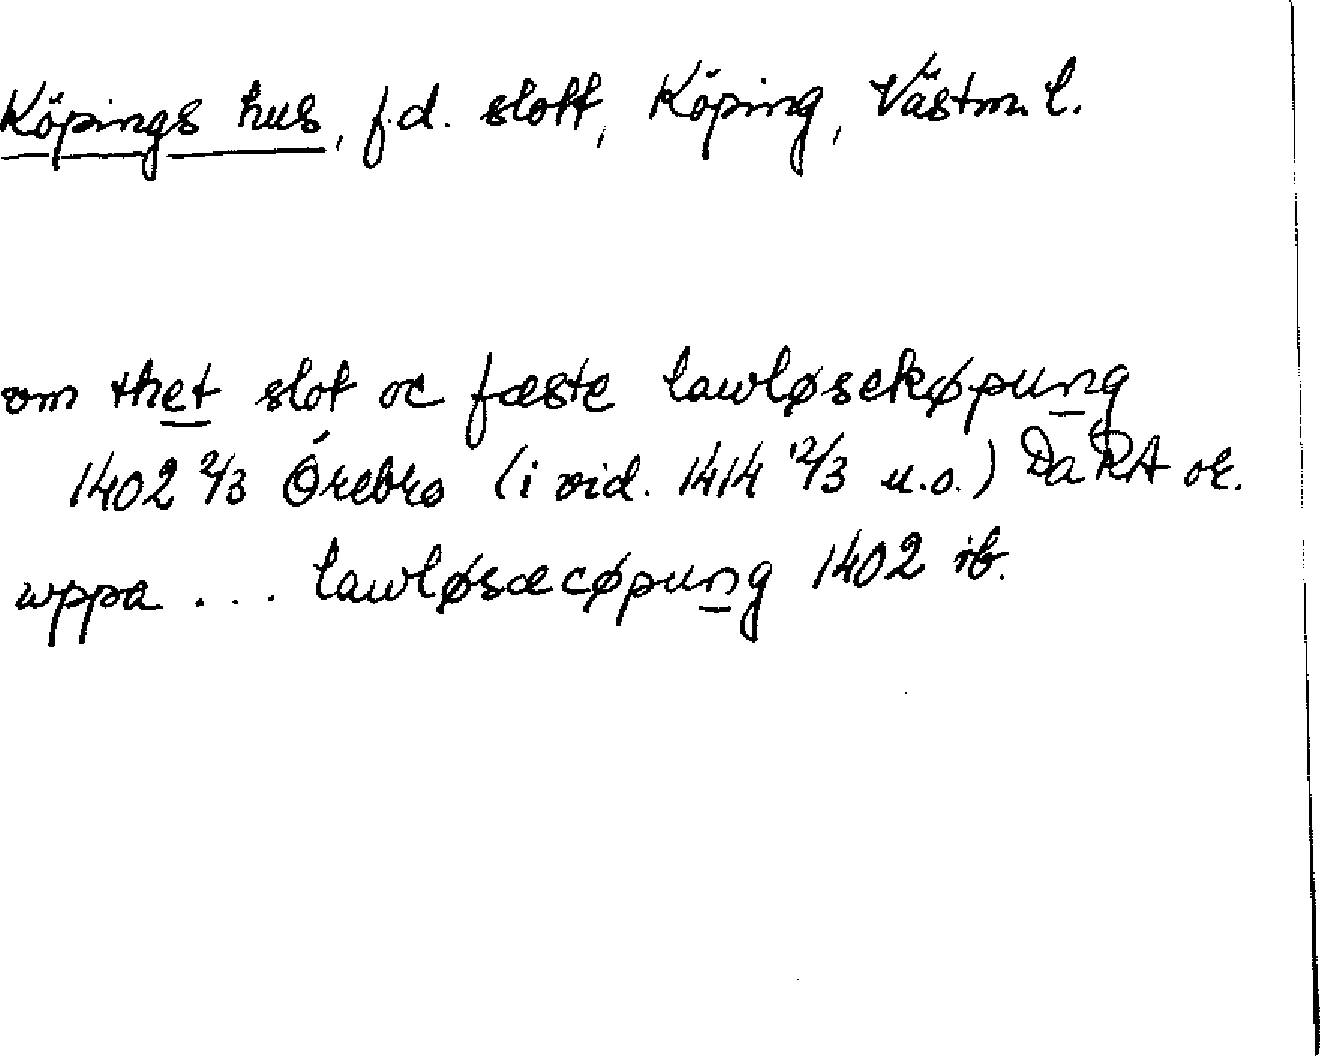 Köpings hus, f.d. slott, Köping, Västm. l.
om thet slot oc fæste lawløsekøpung
1402 2/3 Örebro (i vid. 1414 12/3 u.o.) Da RA or.
wppa ... lawløsæcøpung 1402 ib.